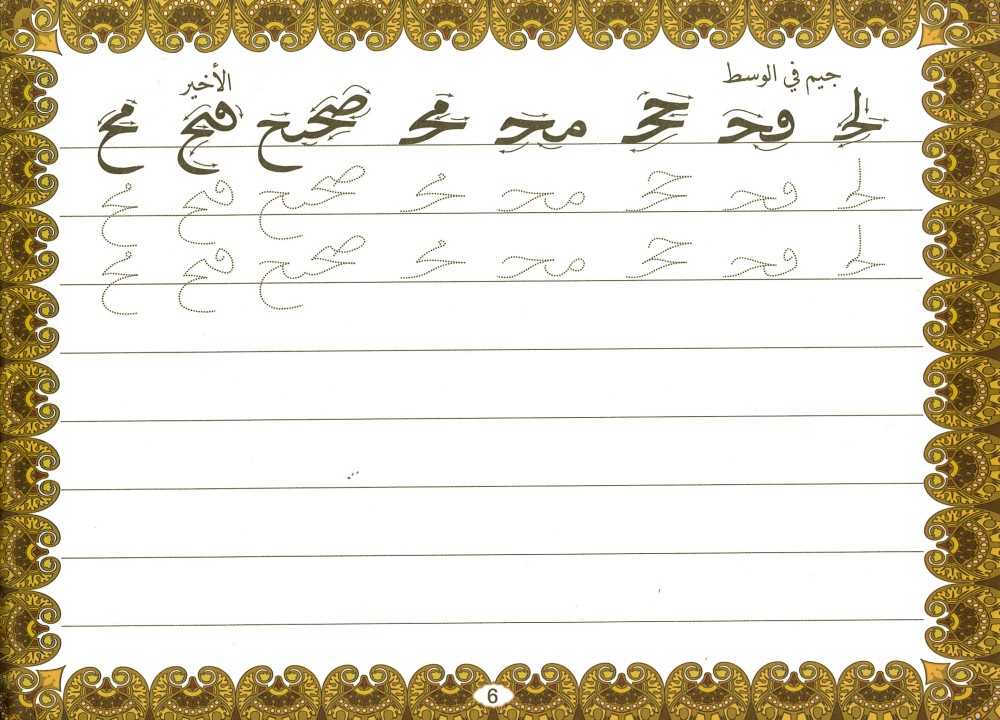 جيم في الوسط الأخير
لحـ فحـ ححـ محـ محـ صحيح فح مح
لحـ فحـ ححـ محـ محـ صحيح فح مح
لحـ فحـ ححـ محـ محـ صحيح فح مح
6